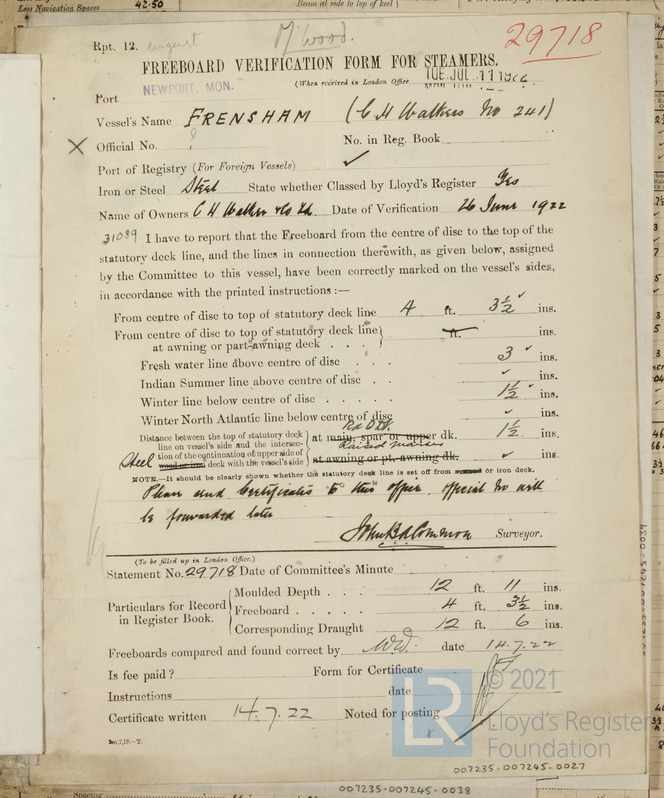 Less Navigation Spaces 42.50 Beam at side to top of keel
Rpt. 12. august M Wood. 29718
FREEBOARD VERIFICATION FORM FOR STEAMERS.
(When received in London Office TUE. JUL. 11 1922
NEWPORT, MON.
Port
Vessel's Name FRENSHAM (C H Walkers No 241)
X Official No. ? No. in Reg. Book
Port of Registry (For Foreign Vessels) ✓
Iron or Steel Steel State whether Classed by Lloyd's Register Yes
Name of Owners C H Walker & Co Ld. Date of Verification 26 June 1922
31089 I have to report that the Freeboard from the centre of disc to the top of the
statutory deck line, and the lines in connection therewith, as given below, assigned
by the Committee to this vessel, have been correctly marked on the vessel's sides,
in accordance with the printed instructions:—
From centre of disc to top of statutory deck line 4 ft. 3½ ✓ ins.
From centre of disc to top of statutory deck line
at awning or part-awning deck . . . } ft. ins.
Fresh water line above centre of disc . . . 3 ✓ ins.
Indian Summer line above centre of disc . . ✓ ins.
Winter line below centre of disc . . . . . 1½ ✓ ins.
Winter North Atlantic line below centre of disc ✓ ins.
Rd Qtr.
Distance between the top of statutory deck
line on vessel's side and the intersec- at main, spar or upper dk. 1½ ins.
Raised
tion of the continuation of upper side of
Steel wood or iron deck with the vessel's side at awning or pt. awning dk. ✓ ins.
NOTE.—It should be clearly shewn whether the statutory deck line is set off from wood or iron deck.
Please send Certificates to this office. Official No will
be forwarded later
John B d Common Surveyor.
(To be filled up in London Office.)
Statement No. 29718 Date of Committee's Minute
Particulars for Record
in Register Book.
Moulded Depth . . . 12 ft. 11 ins.
Freeboard . . . . . 4 ft. 3½ ins.
Corresponding Draught 12 ft. 6 ins.
Freeboards compared and found correct by date 14.7.22
Is fee paid? Form for Certificate
Instructions date
Certificate written 14.7.22 Noted for posting
LR © 2021
Lloyd's Register
Foundation
007235-007245-0027
007235-007245-0038
007235-007245-0039
Spacing